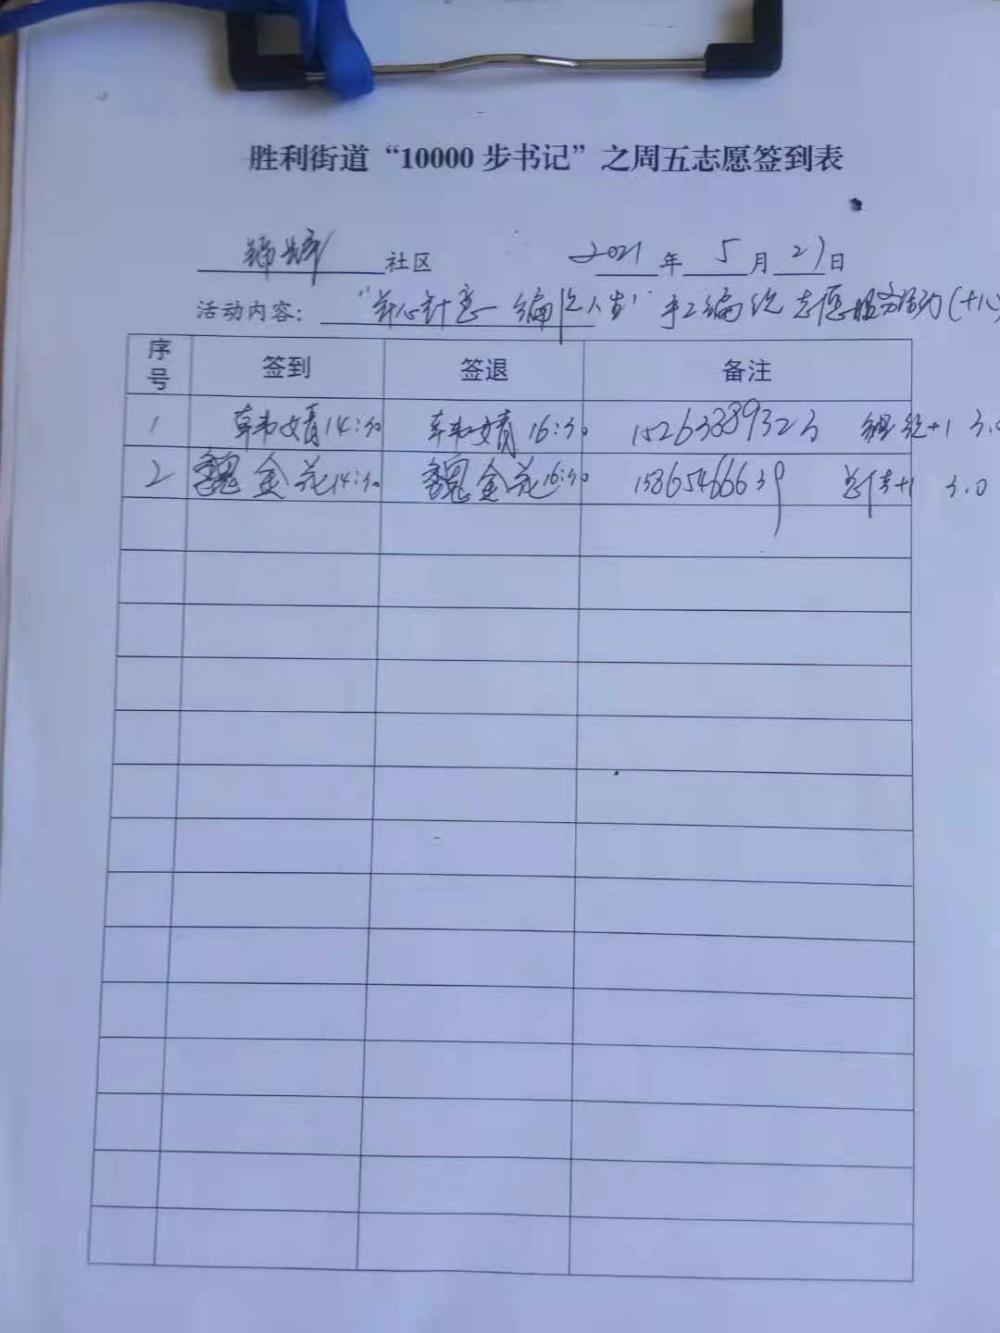 胜利街道“10000步书记”之周五志愿签到表
锦华社区 2021年5月27日
活动内容：“针心针意 编织人生”手工编织志愿服务活动(十八)
序号 签到 签退 备注
1 韩婧14:30 韩婧16:30 15263889323 组织+1 3.0
2 魏金花14:30 魏金花16:30 15865466639 宣传+1 3.0